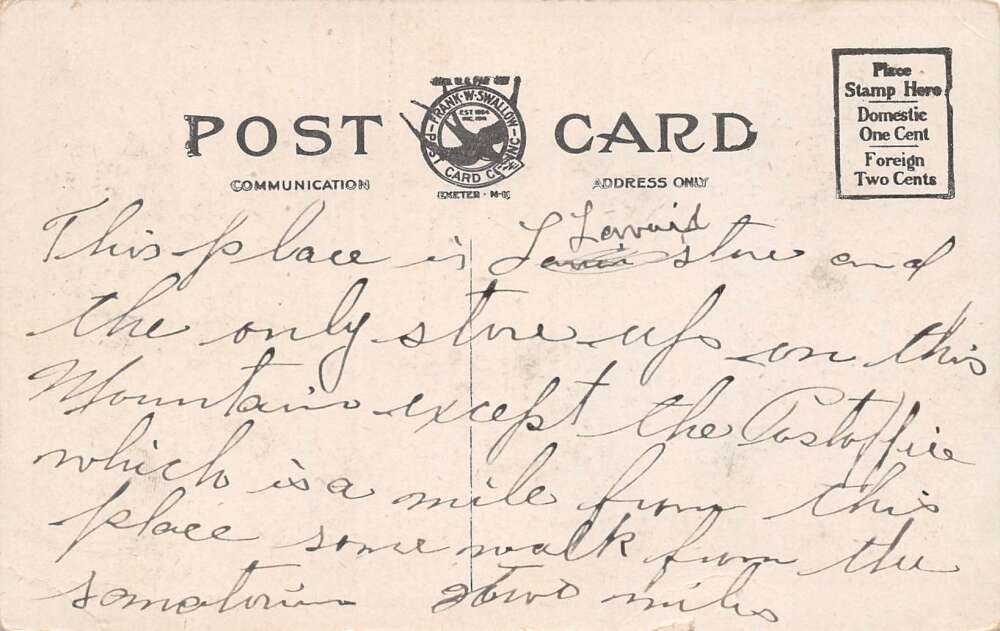 POST CARD
REG. U.S. PAT. OFF.
FRANK·W·SWALLOW
POST CARD CO. INC.
EST 1884
EXETER · N·H
COMMUNICATION
ADDRESS ONLY
Place
Stamp Here
Domestic
One Cent
Foreign
Two Cents
This place is store and
the only store up on this
Mountain except the Postoffice
which is a mile from this
place some walk from the
two miles